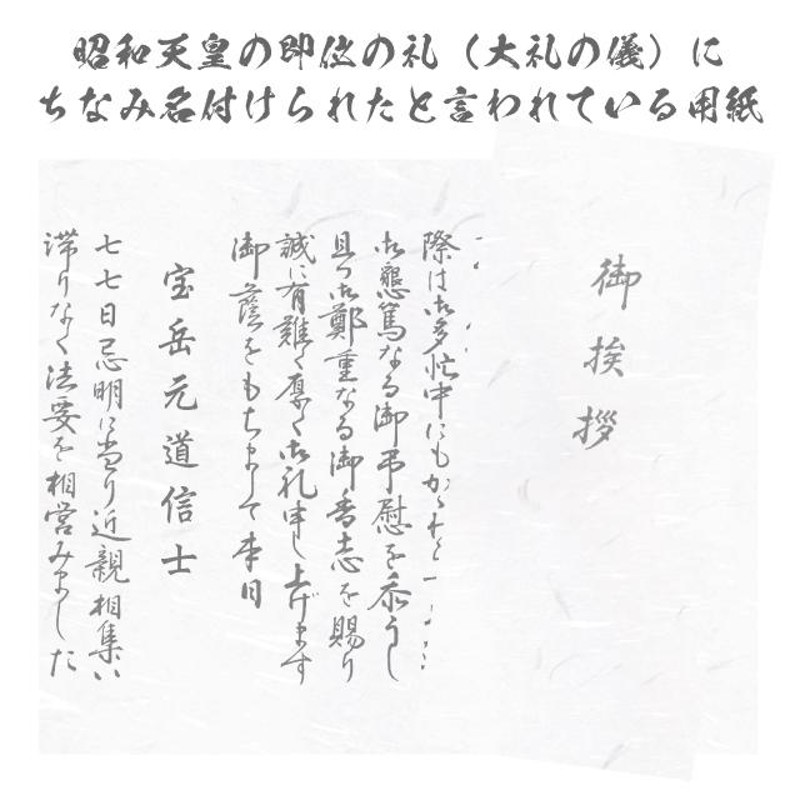 昭和天皇の即位の礼（大礼の儀）に
ちなみ名付けられたと言われている用紙
御挨拶
際は御多忙中にもかゝわ
御懇篤なる御弔慰を忝うし
且つ御鄭重なる御香志を賜り
誠に有難く厚く御礼申し上げます
御蔭をもちまして本日
宝岳元道信士
七七日忌明に当り近親相集い
滞りなく法要を相営みました